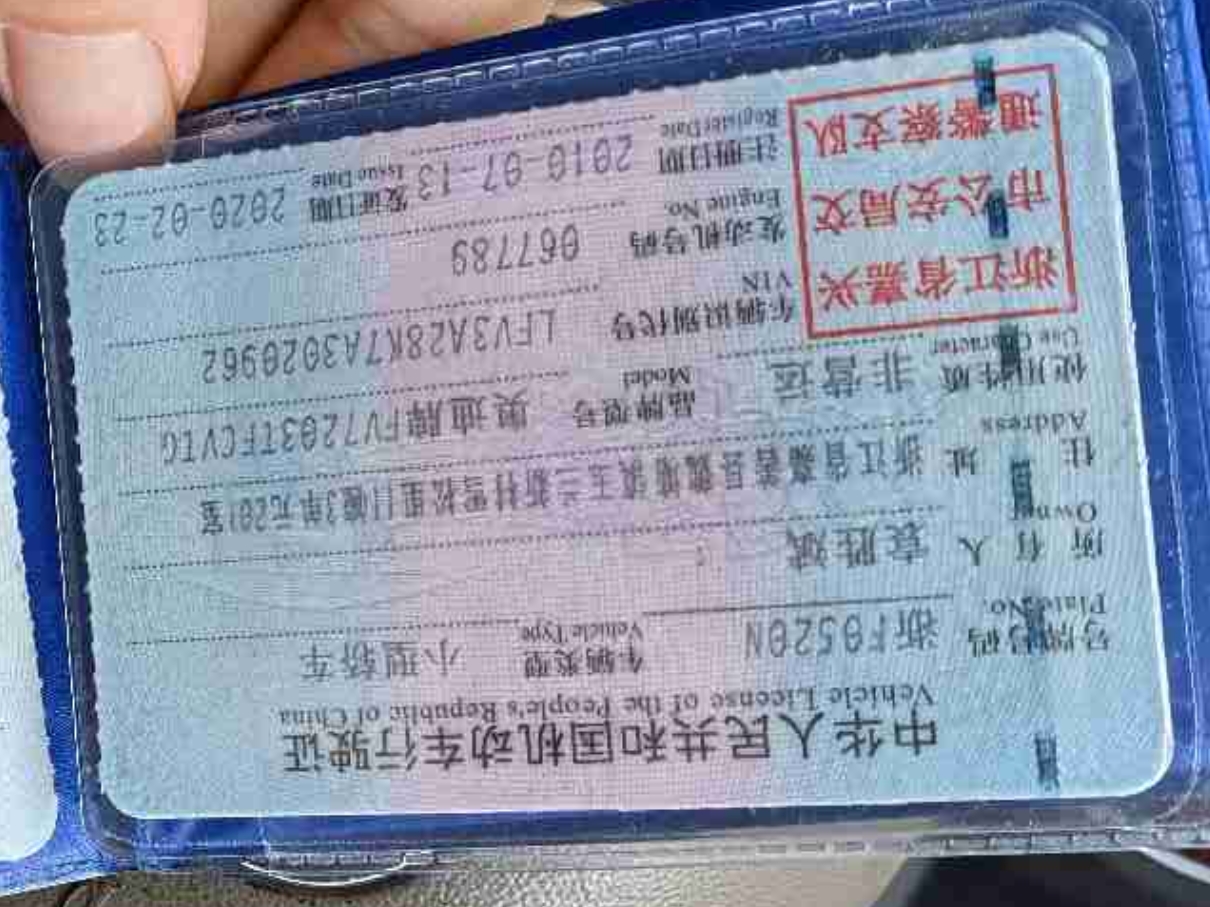 中华人民共和国机动车行驶证
Vehicle License of the People's Republic of China
号牌号码 浙F0520N 车辆类型 小型轿车
Plate No. Vehicle Type
所有人 袁胜斌
Owner
住址 浙江省嘉善县魏塘镇玉兰新村雪松里11幢3单元201室
Address
使用性质 非营运 品牌型号 奥迪牌FV7203TFCVTG
Use Character Model
浙江省嘉兴
市公安局交
通警察支队
车辆识别代号 LFV3A28K7A3020962
VIN
发动机号码 067789
Engine No.
注册日期 2010-07-13 发证日期 2020-02-23
Register Date Issue Date